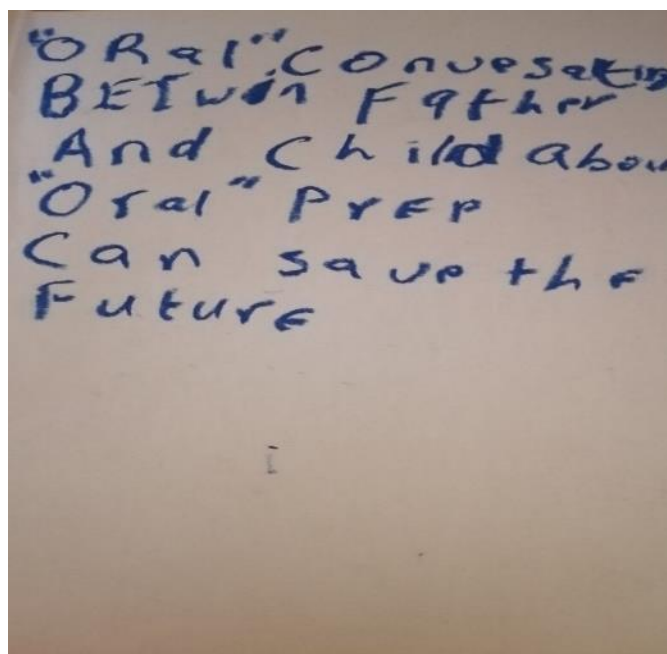 "ORal" Conuesation
BETwin Father
And Child abou
"Oral" PrEP
Can save the
Future